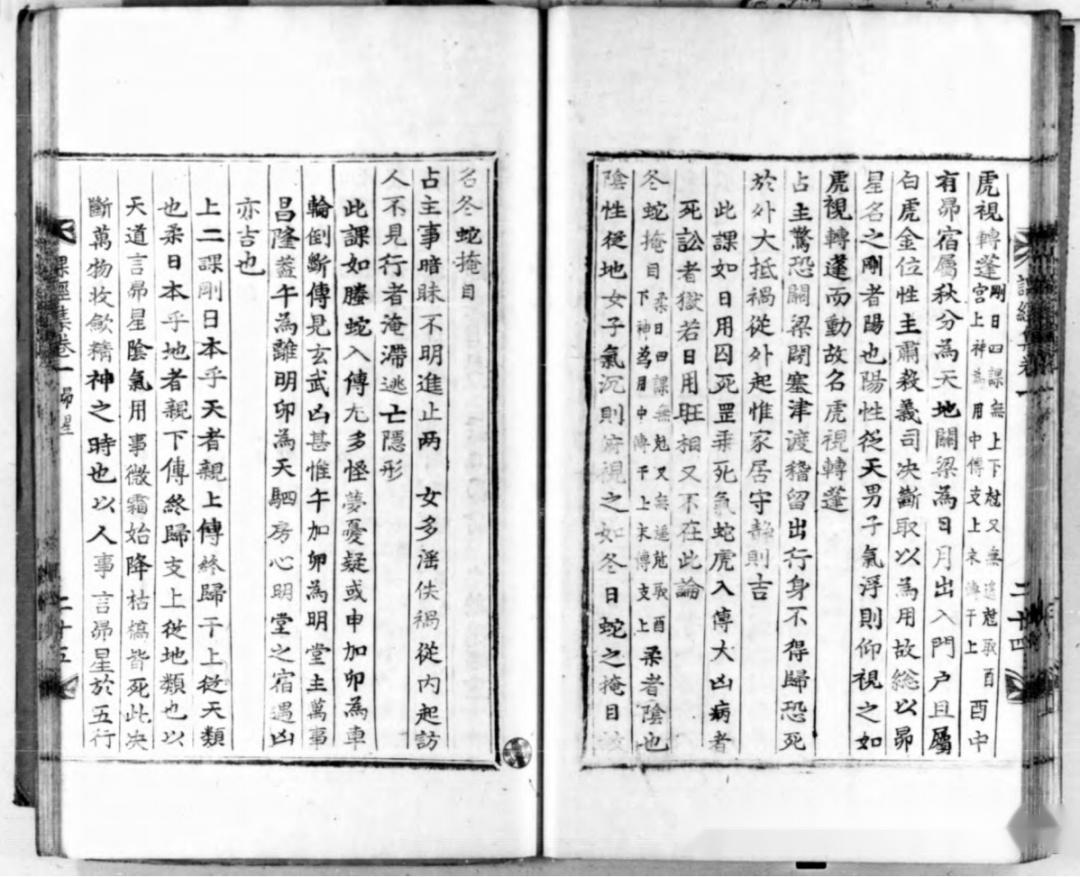 虎視轉蓬剛日四課無上下尅又無遥尅取酉宮上神為用中傳支上末傳干上酉中
有昴宿屬秋分為天地關梁為日月出入門户且屬
白虎金位性主肅殺義司決斷取以為用故総以昴
星名之剛者陽也陽性從天男子氣浮則仰視之如
虎視轉蓬而動故名虎視轉蓬
占主驚恐關梁閉塞津渡稽留出行身不得歸恐死
於外大抵禍從外起惟家居守靜則吉
此課如日用囚死罡乘死氣蛇虎入傳大凶病者
死訟者獄若日用旺相又不在此論
冬蛇掩目柔日四課無尅又無遥尅取酉下神為用中傳干上末傳支上柔者陰也
陰性從地女子氣沉則俯視之如冬日蛇之掩目故
名冬蛇掩目
占主事暗昧不明進止两 女多滛佚禍從内起訪
人不見行者淹滯逃亡隱形
此課如螣蛇入傳尤多怪夢憂疑或申加卯為車
輪倒斷傳見玄武凶甚惟午加卯為明堂主萬事
昌隆葢午為離明卯為天駟房心明堂之宿遇凶
亦吉也
上二課剛日本乎天者親上傳終歸干上從天類
也柔日本乎地者親下傳終歸支上從地類也以
天道言昴星陰氣用事微霜始降枯槁皆死此決
斷萬物收歛精神之時也以人事言昴星於五行
課經集卷一
二十四
課經集卷一 昴星
二十五